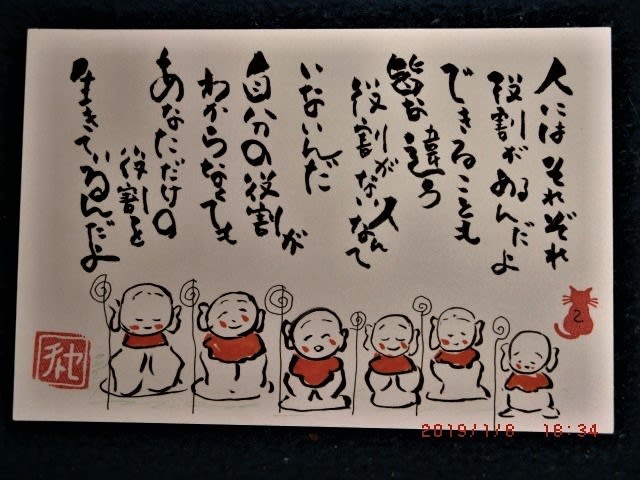 人にはそれぞれ
役割があるんだよ
できることも
皆な違う
役割がない人なんて
いないんだ
自分の役割が
わからなくても
あなただけの
役割を
生きているんだよ
2
2019/1/8 18:34